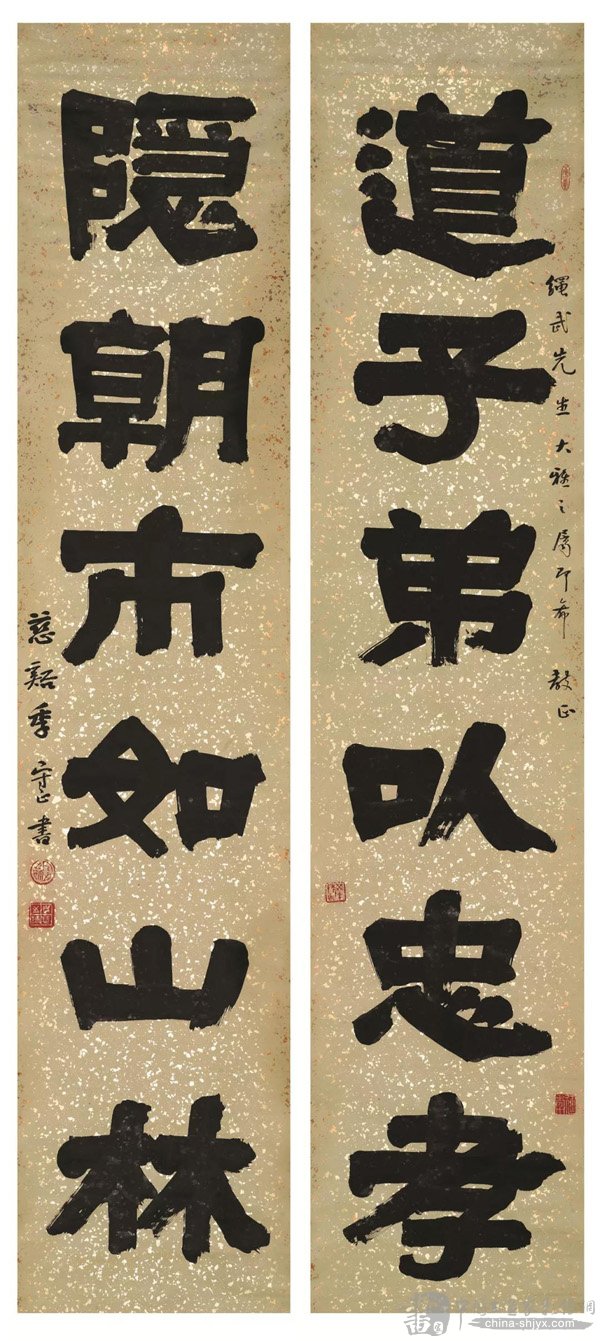 道子弟以忠孝
繩武先生大雅之屬即希 教正
隱朝市如山林
慈谿季守正書
china-shjyx.com